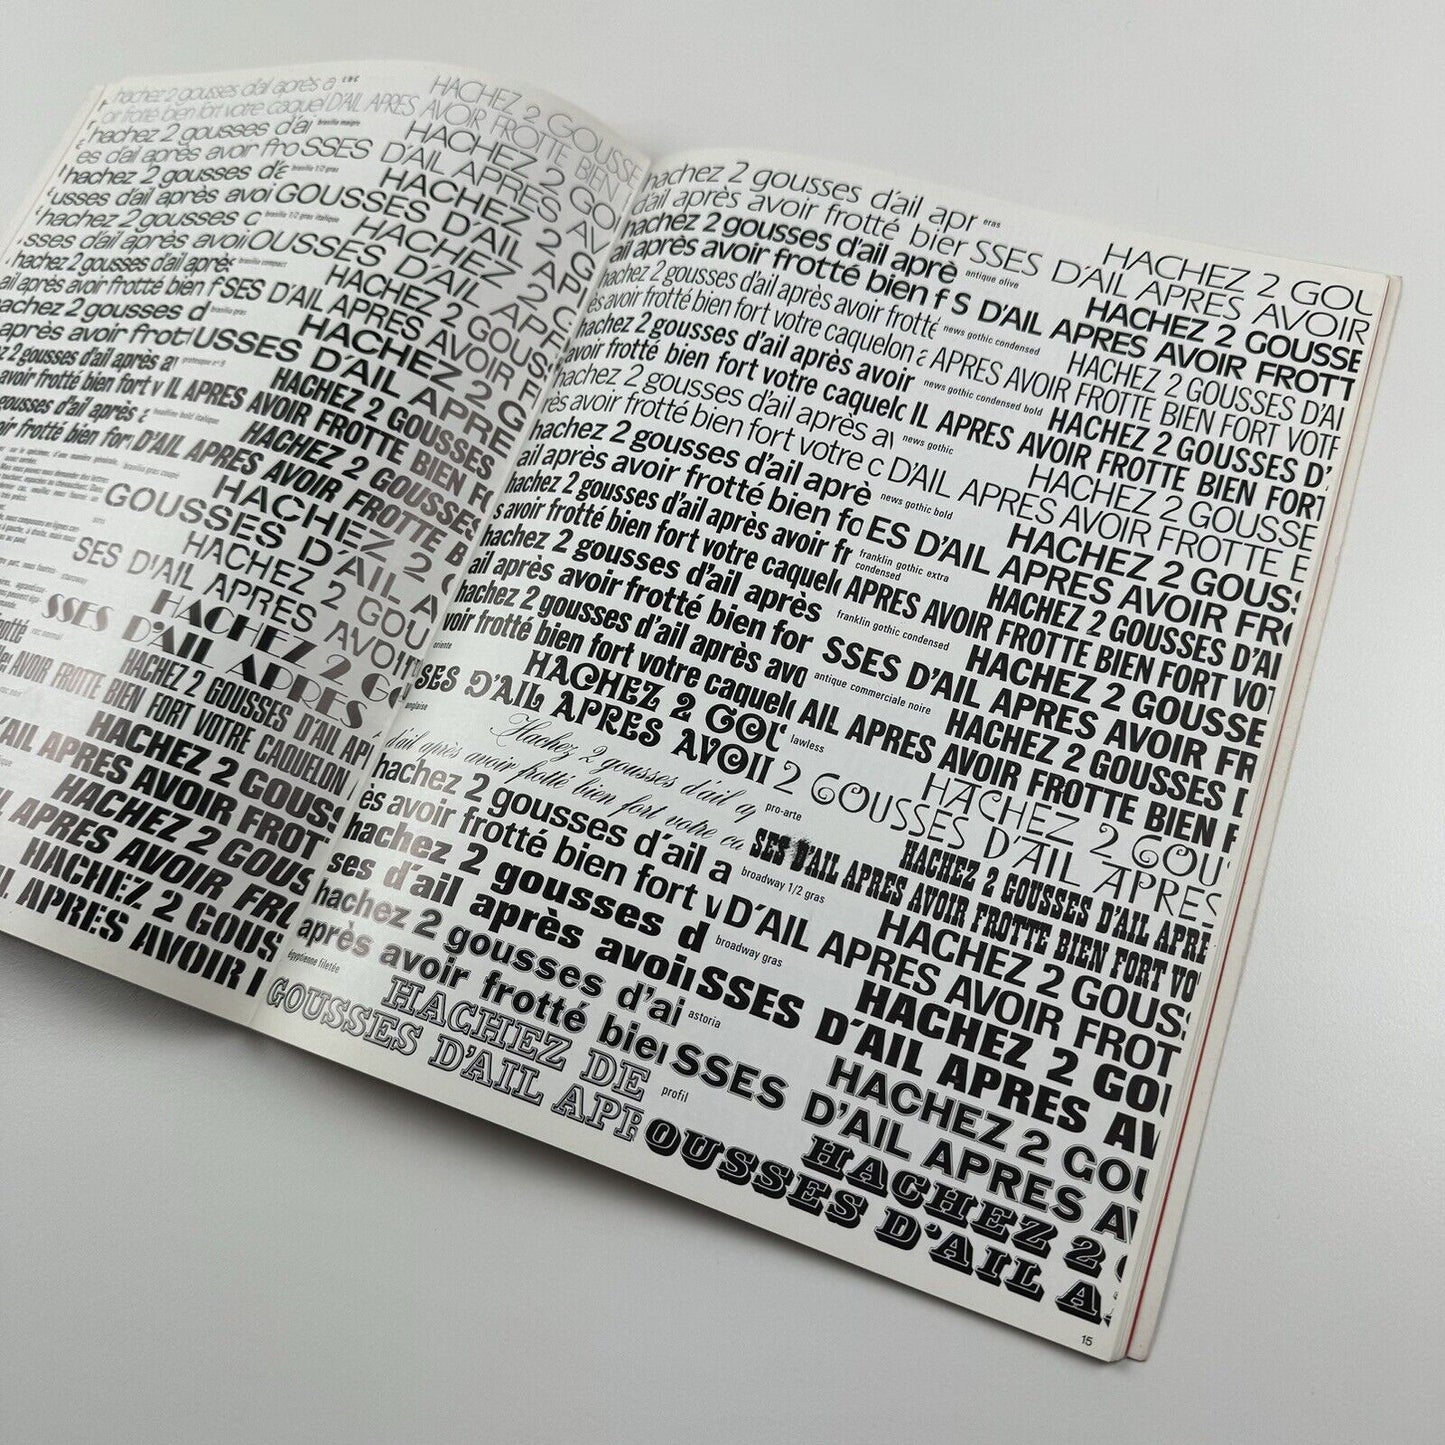 hachez 2 gousses d'ail après a
oir frotté bien fort votre caquel
hachez 2 gousses d'ai
es d'ail après avoir fro
hachez 2 gousses d'a
usses d'ail après avoi
hachez 2 gousses
sses d'ail après avoi
hachez 2 gousses d'ail après
ail après avoir frotté bien f
hachez 2 gousses d
après avoir frot
2 gousses d'ail après a
avoir frotté bien fort v
gousses d'ail après
oir frotté bien for
HACHEZ 2 GOUSSE
D'AIL APRES AVOIR FROTTE BIEN
brasilia maigre
HACHEZ 2 GOU
SSES D'AIL APRES AV
brasilia 1/2 gras
HACHEZ 2 G
GOUSSES D'AIL API
brasilia 1/2 gras italique
HACHEZ 2
OUSSES D'AIL APR
brasilia compact
HACHEZ 2 GOUSS
SES D'AIL APRES AVOIR F
brasilia gras
HACHEZ 2 G
USSES D'AIL APRE
grotesque n° 9
HACHEZ 2 GOUSSES
IL APRES AVOIR FROTTE BIEN FO
headline bold italique
HACHEZ 2 GOUSSES
D'AIL APRES AVOIR FROTTE B
HACHEZ 2
GOUSSES D'AIL A
HACHEZ 2 GOU
SES D'AIL APRES AVOIR
HACHEZ 2 G
SSES D'AIL APRES
HACHEZ 2 GOUSSES D'AIL API
AVOIR FROTTE BIEN FORT VOTRE CAQUELON
HACHEZ 2 GOUSS
AIL APRES AVOIR FROTT
HACHEZ 2 GOUS
APRES AVOIR FRO
HACHEZ 2 GOUS
IL APRES AVOIR
hachez 2 gousses d'ail apr
d'ail après avoir frotté bier
eras
hachez 2 gousses d'ail aprè
ail après avoir frotté bien f
antique olive
hachez 2 gousses d'ail après avoir frotté
s avoir frotté bien fort votre caquelon a
news gothic condensed
hachez 2 gousses d'ail après avoir
avoir frotté bien fort votre caquelc
news gothic condensed bold
hachez 2 gousses d'ail après av
près avoir frotté bien fort votre c
news gothic
hachez 2 gousses d'ail aprè
ail après avoir frotté bien fo
news gothic bold
hachez 2 gousses d'ail après avoir fr
s avoir frotté bien fort votre caquel
franklin gothic extra
condensed
hachez 2 gousses d'ail après
ail après avoir frotté bien for
franklin gothic condensed
hachez 2 gousses d'ail après avo
voir frotté bien fort votre caquel
antique commerciale noire
oriente
HACHEZ 2 GOU
SES D'AIL APRES AVOII
lawless
anglaise
Hachez 2 gousses d'ail ap
d'ail après avoir frotté bien fort votre ca
pro-arte
hachez 2 gousses d'ail a
ès avoir frotté bien fort v
broadway 1/2 gras
hachez 2 gousses d
ses d'ail après avoi
broadway gras
hachez 2 gousses d'ai
après avoir frotté bie
astoria
égyptienne filetée
HACHEZ DE
GOUSSES D'AIL APR
profil
HACHEZ 2 GOU
SSES D'AIL APRES AVOIR
HACHEZ 2 GOUSSE
S D'AIL APRES AVOIR FROTT
HACHEZ 2 GOUSSES D'AI
APRES AVOIR FROTTE BIEN FORT VOTR
HACHEZ 2 GOUSSES D'
IL APRES AVOIR FROTTE BIEN FORT
HACHEZ 2 GOUSSE
D'AIL APRES AVOIR FROTTE B
HACHEZ 2 GOUSS
ES D'AIL APRES AVOIR FR
HACHEZ 2 GOUSSES D'AI
APRES AVOIR FROTTE BIEN FORT VO
HACHEZ 2 GOUSSE
SSES D'AIL APRES AVOIR FR
HACHEZ 2 GOUSSES
AIL APRES AVOIR FROTTE BIEN
HACHEZ 2 GOU
2 GOUSSES D'AIL APRES
HACHEZ 2 GOUSSES D'AIL APRE
SES D'AIL APRES AVOIR FROTTE BIEN FORT VO
HACHEZ 2 GOUS
D'AIL APRES AVOIR FROT
HACHEZ 2 GO
SSES D'AIL APRES AV
HACHEZ 2 GOU
SSES D'AIL APRES A
HACHEZ 2
OUSSES D'AIL A
15